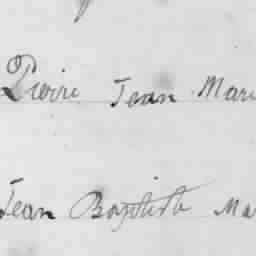 Pierre Jean Mari
Jean Baptiste Ma